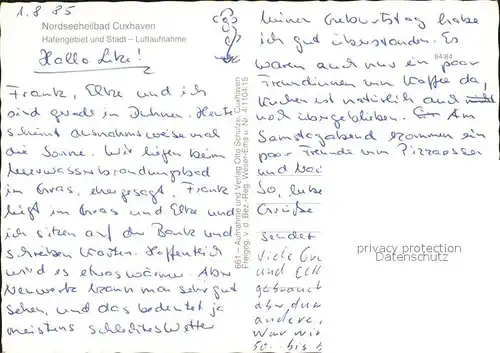 1.8.85
Nordseeheilbad Cuxhaven
Hafengebiet und Stadt – Luftaufnahme
Hallo Elke!
Frank, Elke und ich
sind gerade in Duhnen. Heute
scheint ausnahmsweise mal
die Sonne. Wir liegen beim
Meerwasserbrandungsbad
im Gras, eher gesagt, Frank
liegt im Gras und Elke und
ich sitzen auf der Bank und
schreiben Karten. Hoffentlich
wird es etwas wärmer. Aber
Neuwerk kann man sehr gut
sehen, und das bedeutet ja
meistens schlechtes Wetter
661 – Aufnahme und Verlag Otto Schulze, Cuxhaven
Freigeg. v. d. Bez.-Reg. Weser-Ems u. Nr. 4/1104/15
84/84
Meinen Geburtstag habe
ich gut überstanden. Es
waren auch nur ein paar
Freundinnen von Kaffee da,
Kuchen ist natürlich auch
noch übriggeblieben. Am
Samstagabend kommen ein
paar Freunde zum Pizzaessen
und
So, liebe
Grüße
sendet
Viele
und
gebraucht
aber
andere,
War
so. bis
privacy protection
Datenschutz